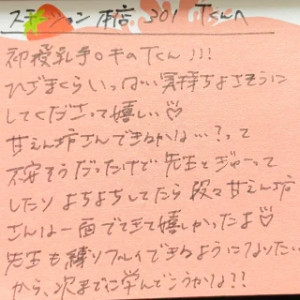 スキーション 本店 301 Tくんへ
初授乳手○キのTくん!!!
ひざまくらいっぱい気持ちよさそうに
してくださって嬉しい♡
甘えん坊さんできるかな…?って
不安そうだったけど先生とぎゅーって
したりよちよちしてたら段々甘えん坊
さんな一面でてきて嬉しかったよ♡
先生も縛りプレイできるようになりたい
から、次までに学んでこうかな??